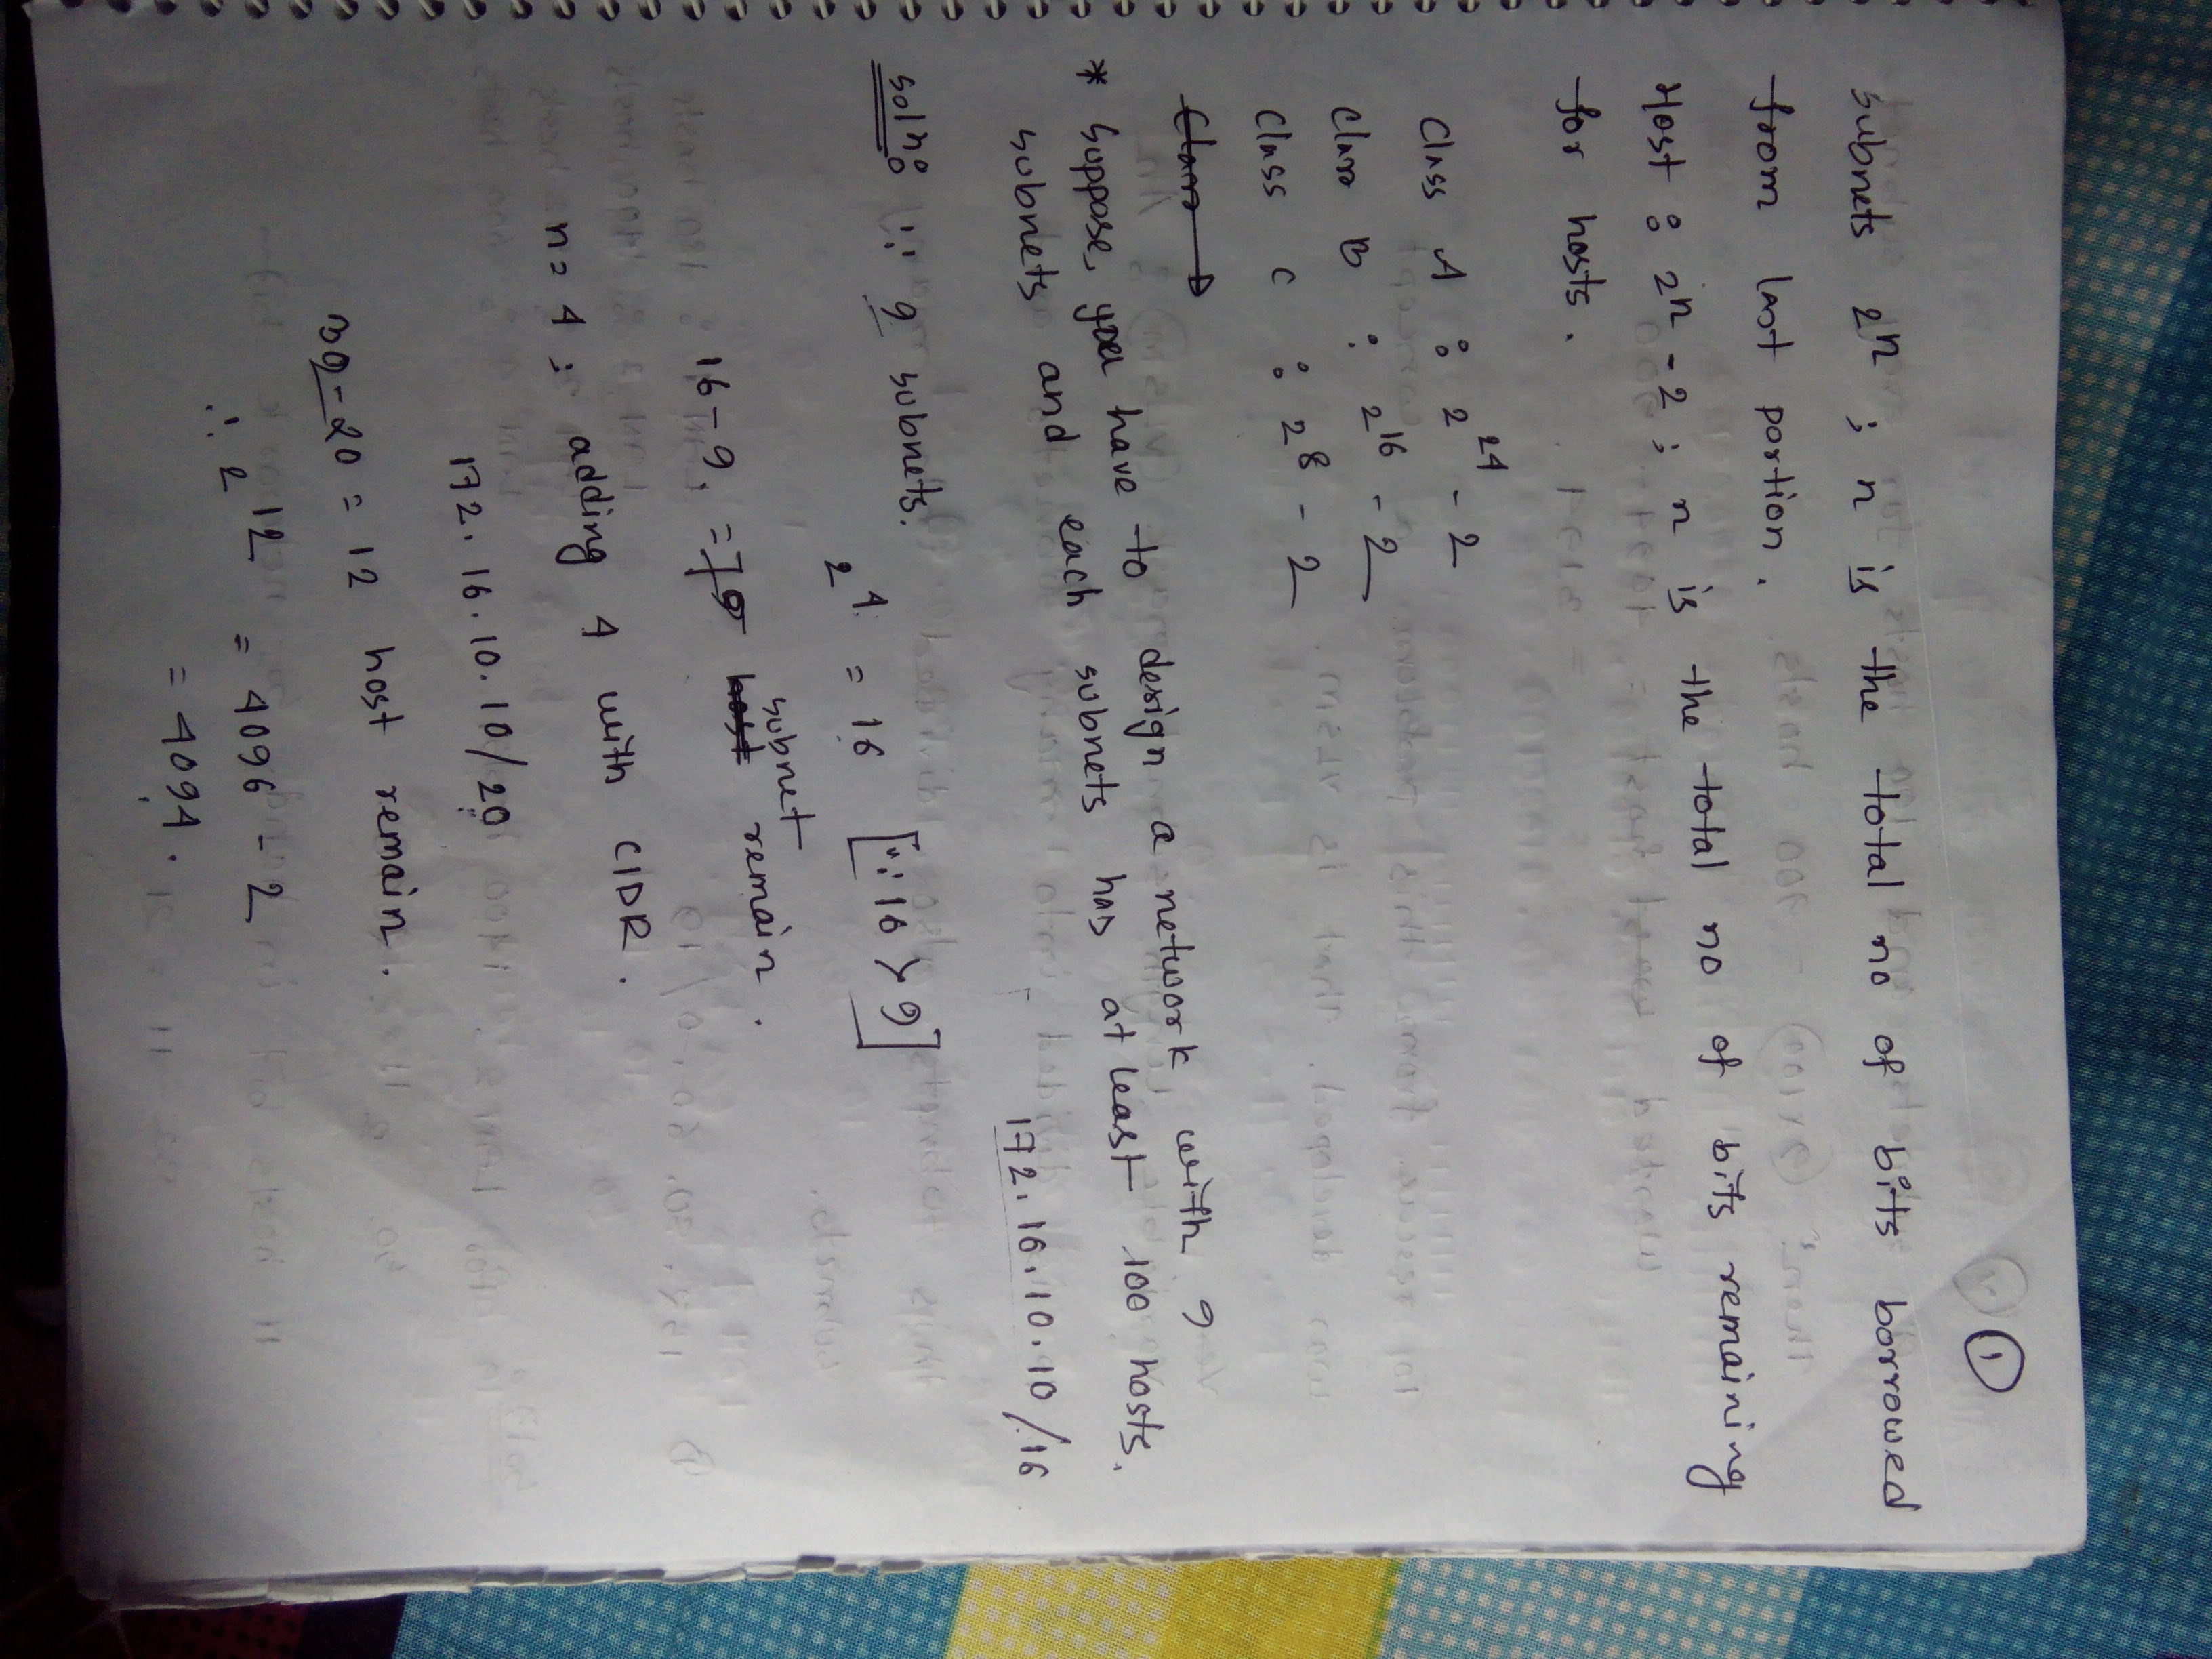 1
subnets 2^n ; n is the total no of bits borrowed
from last portion.
Host : 2^n - 2 ; n is the total no of bits remaining
for hosts.
Class A : 2^24 - 2
Class B : 2^16 - 2
Class C : 2^8 - 2
Class D
* Suppose, you have to design a network with 9
subnets and each subnets has at least 100 hosts.
172.16.10.10/16
Soln: ∵ 9 subnets.
2^4 = 16 [∵ 16 > 9]
subnet
16-9. = 7 host remain.
n = 4 ; adding 4 with CIDR.
172.16.10.10/20
32-20 = 12 host remain.
∴ 2^12 = 4096 - 2
= 4094.